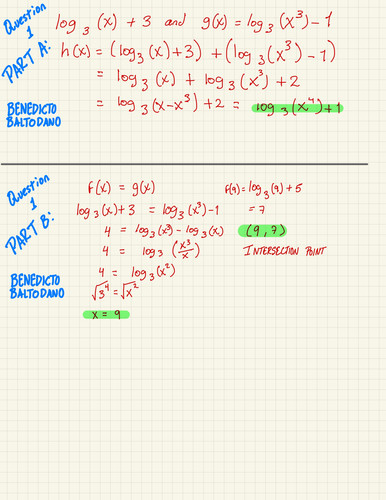 Question 1
PART A:
log₃(x) + 3 and g(x) = log₃(x³) - 1
h(x) = (log₃(x) + 3) + (log₃(x³) - 1)
= log₃(x) + log₃(x³) + 2
= log₃(x-x³) + 2 = log₃(x⁴) + 1
BENEDICTO BALTODANO
Question 1
PART B:
f(x) = g(x)
log₃(x) + 3 = log₃(x³) - 1
4 = log₃(x³) - log₃(x)
4 = log₃(x³/x)
4 = log₃(x²)
√3⁴ = √x²
x = 9
f(9) = log₃(9) + 5
= 7
(9, 7)
INTERSECTION POINT
BENEDICTO BALTODANO